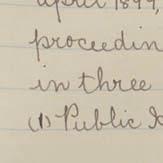 april 1899,
proceedin
in three
(1) Public